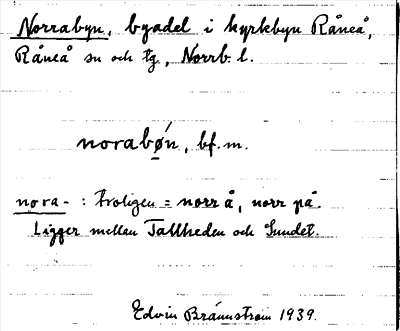 Norrabyn, byadel i kyrkbyn Råneå,
Råneå sn och tg, Norrb. l.
norabǿn, bf. m.
nora- : troligen = norr å, norr på.
Ligger mellan Tallheden och Sundet.
Edvin Brännström 1939.